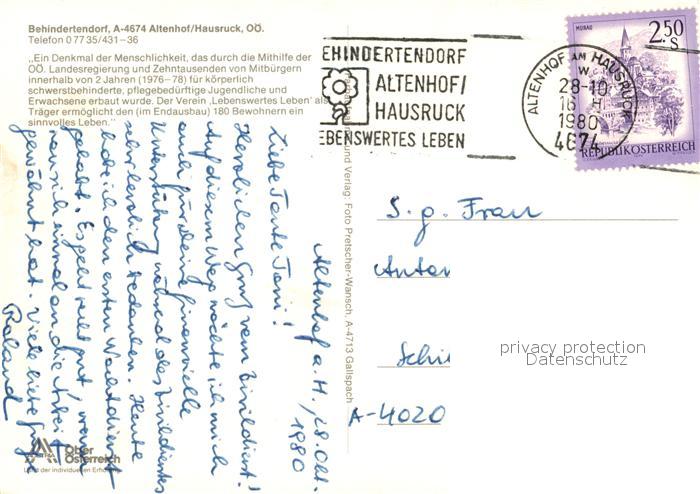 Behindertendorf, A-4674 Altenhof/Hausruck, OÖ.
Telefon 0 77 35/431-36
„Ein Denkmal der Menschlichkeit, das durch die Mithilfe der
OÖ. Landesregierung und Zehntausenden von Mitbürgern
innerhalb von 2 Jahren (1976-78) für körperlich
schwerstbehinderte, pflegebedürftige Jugendliche und
Erwachsene erbaut wurde. Der Verein ‚Lebenswertes Leben' als
Träger ermöglicht den (im Endausbau) 180 Bewohnern ein
sinnvolles Leben."
EHINDERTENDORF
ALTENHOF/
HAUSRUCK
EBENSWERTES LEBEN
ALTENHOF AM HAUSRUCK
W
28-10
16 H
1980
4674
MURAU
2.50
S
REPUBLIK ÖSTERREICH
Altenhof a. H., 28. Okt.
1980
Liebe Tante Toni!
Herzlichen Gruß vom Zivildienst!
Auf diesem Weg möchte ich mich
auch für Deine finanzielle
Unterstützung während des Zivildienstes
sehr herzlich bedanken. Heute
habe ich den ersten Wachtdienst
gehabt. Es geht recht gut, wenn
man sich einmal an die Arbeit
gewöhnt hat. Viele liebe
Roland
und Verlag: Foto Pretscher-Wansch, A-4713 Gallspach
S. g. Frau
Anton
Schi
A-4020
privacy protection
Datenschutz
Ober
Österreich
Land der individuellen Erholung